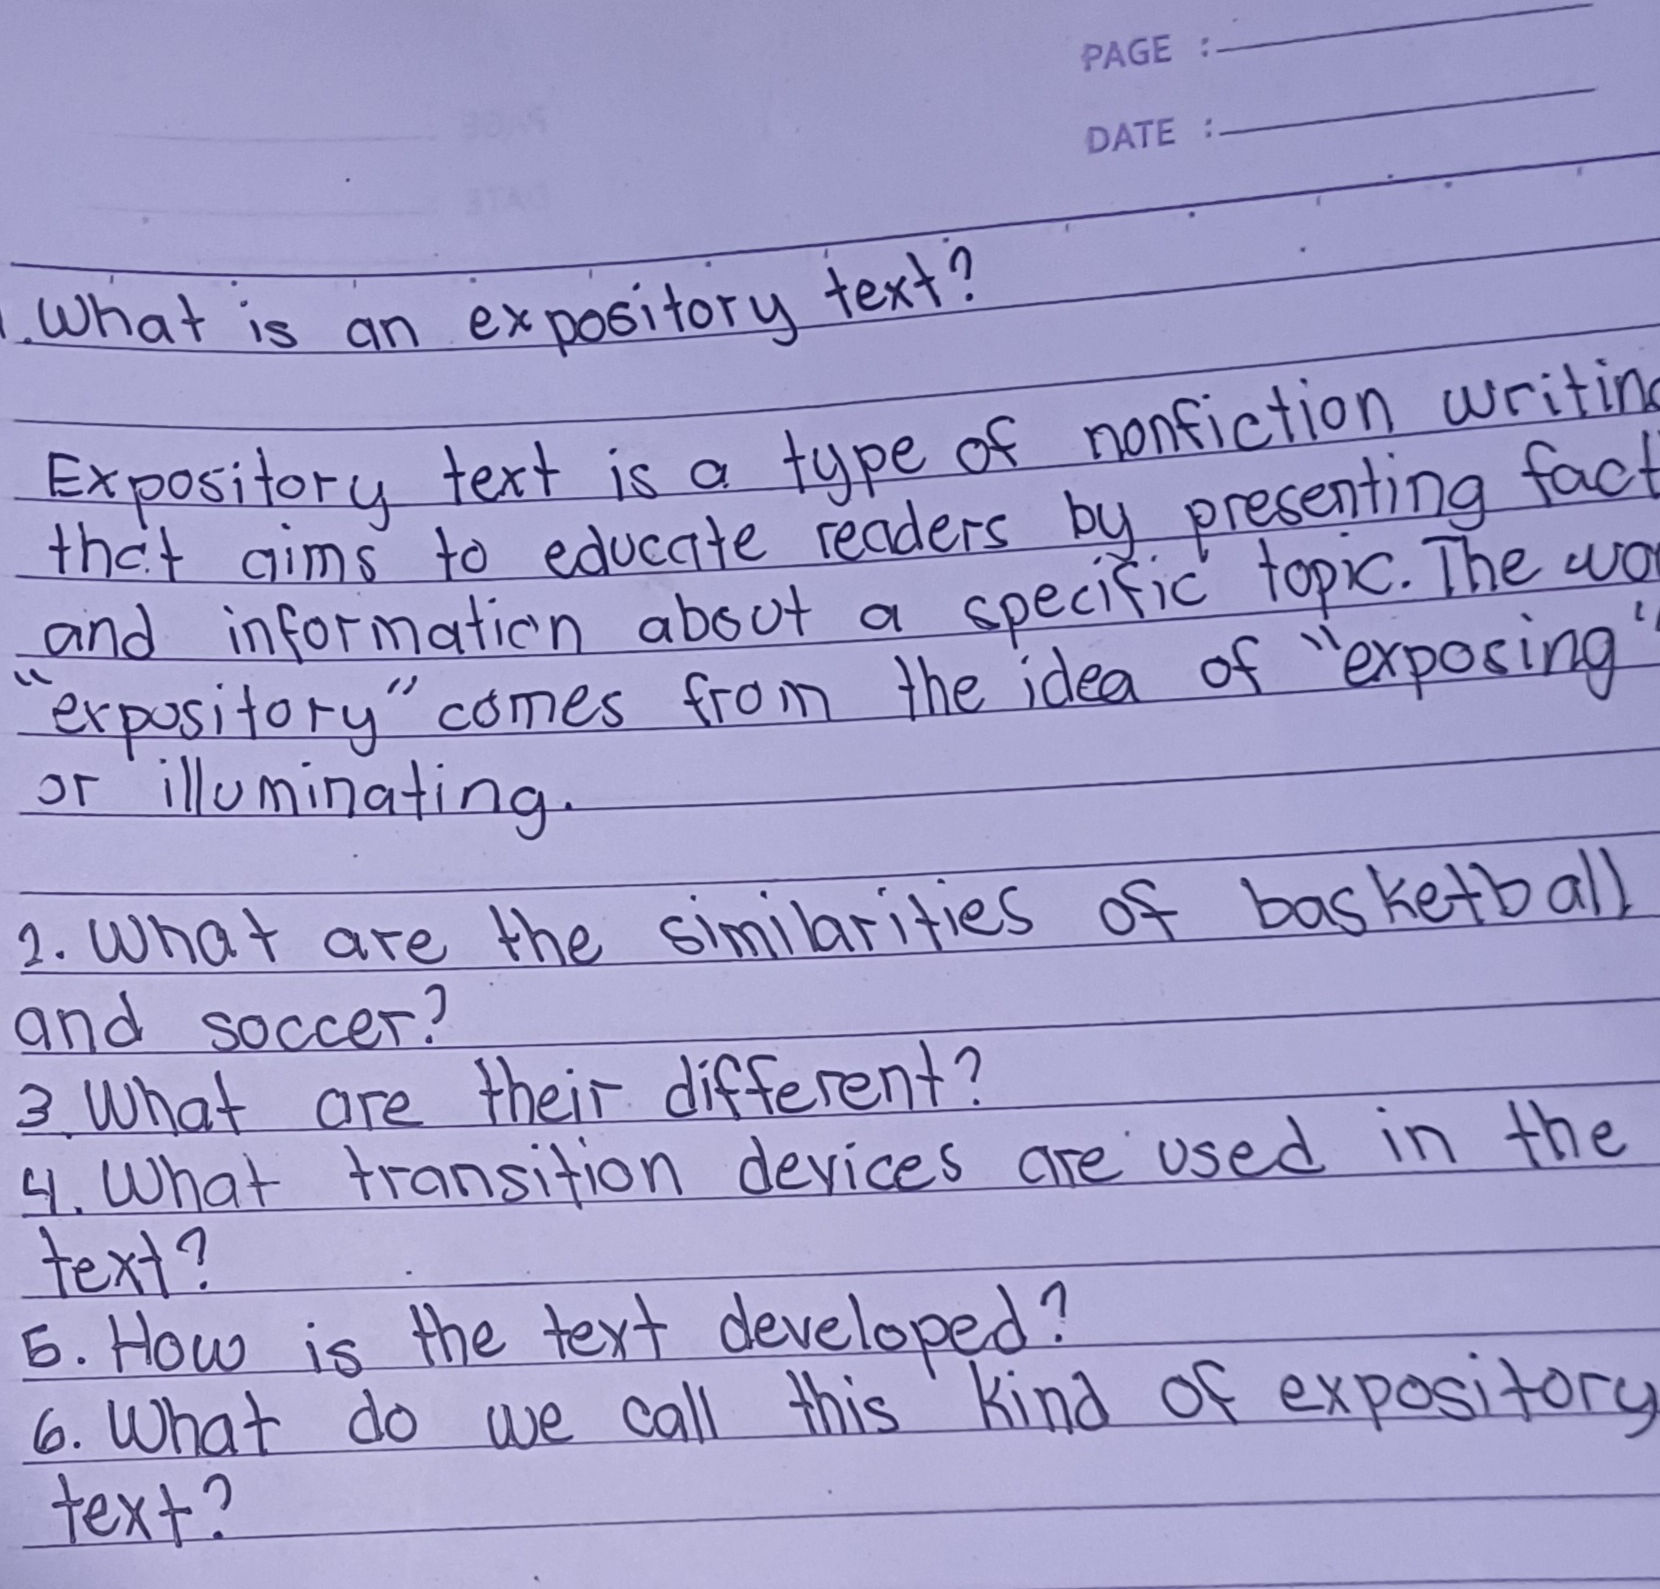 PAGE :
DATE :
1. What is an expository text?
Expository text is a type of nonfiction writing
that aims to educate readers by presenting fact
and information about a specific topic. The wo
"expository" comes from the idea of "exposing"
or illuminating.
2. What are the similarities of basketball
and soccer?
3. What are their different?
4. What transition devices are used in the
text?
5. How is the text developed?
6. What do we call this kind of expository
text?